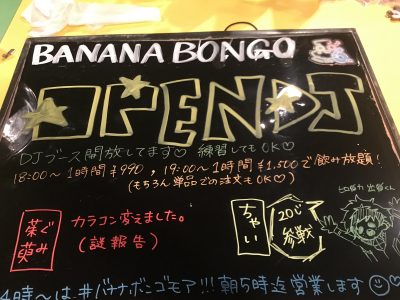 BANANA BONGO
OPEN DJ
DJブース開放してます♡ 練習してもOK♡
18:00〜1時間¥990, 19:00〜1時間¥1,500で飲み放題!
(もちろん単品での注文もOK♡)
茱萸 ぐみ
カラコン変えました。
(謎報告)
ちゃい
20じ
参戦
4時〜は#バナナボンゴモア!!!朝5時迄営業します